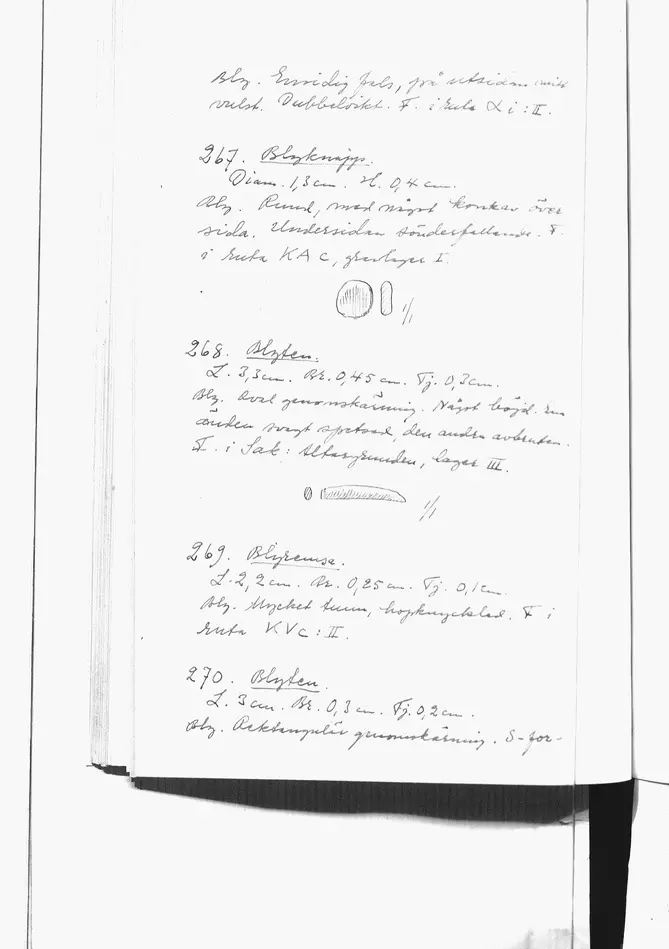 Bly. Ensidig fals, på utsidan
vulst. Dubbelvikt. F. i ruta i : II.
267. Blyknapp.
Diam. 1,3 cm. H. 0,4 cm.
Bly. Rund, med något konkav över
sida. Undersidan sönderfallande. F.
i ruta KA c, gravlager I.
1/1
268. Blyten.
L. 3,3 cm. Br. 0,45 cm. Tj. 0,3 cm.
Bly. Oval genomskärning. Något böjd. Ena
änden svagt spetsad, den andra avbruten.
F. i Sak: Altargrunden, lager III.
1/1
269. Blyremsa.
L. 2,2 cm. Br. 0,25 cm. Tj. 0,1 cm.
Bly. Mycket tunn, hopknycklad. F i
ruta KV c : II.
270. Blyten.
L. 3 cm. Br. 0,3 cm. Tj. 0,2 cm.
Bly. Rektangulär genomskärning. S-for-